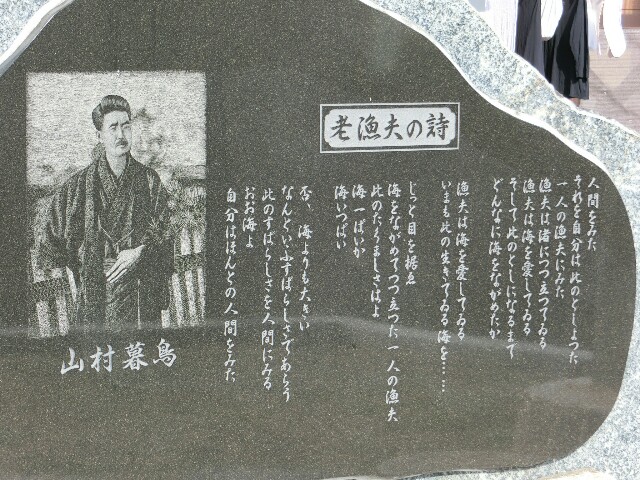 老漁夫の詩
人間をみた
それを自分は此のとしよつた
一人の漁夫にみた
漁夫は渚につつ立つてゐる
漁夫は海を愛してゐる
そして此のとしになるまで
どんなに海をながめたか
漁夫は海を愛してゐる
いまも此の生きてゐる海を……
じつと目を据ゑ
海をながめてつつ立つた一人の漁夫
此のたくましさはよ
海一ぱいか
海いつぱい
否、海よりも大きい
なんといふすばらしさであらう
此のすばらしさを人間にみる
おお海よ
自分はほんとの人間をみた
山村暮鳥